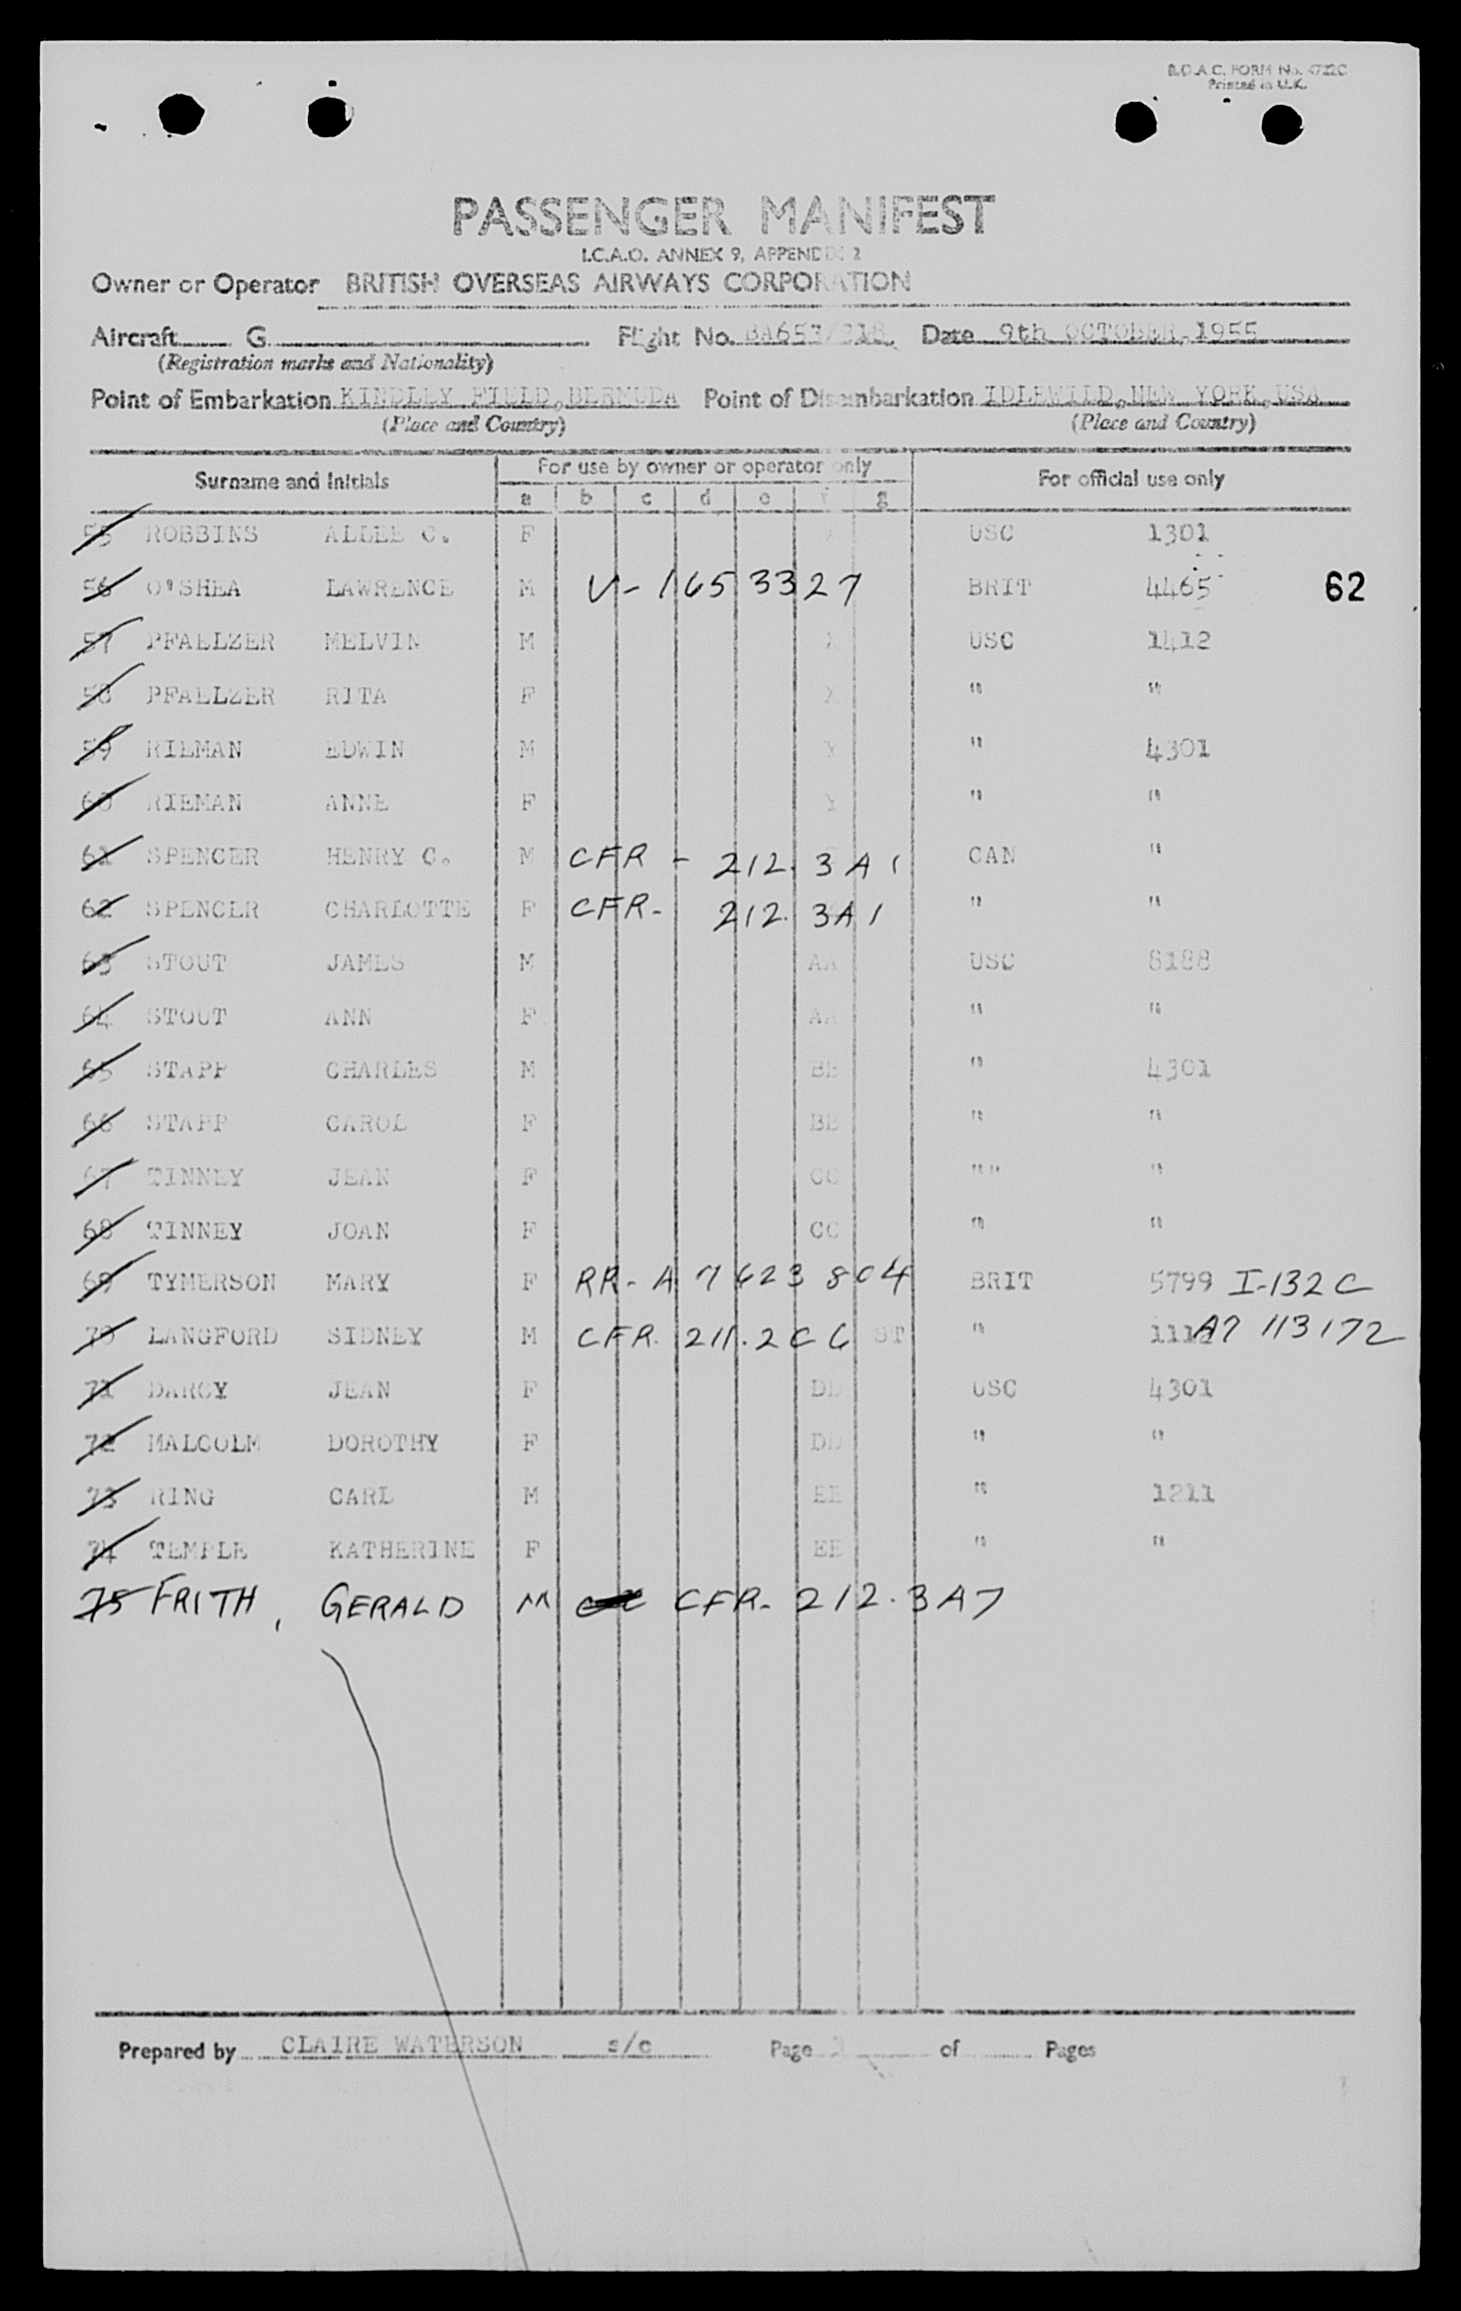 B.O.A.C. FORM No. 4722C
Printed in U.K.
PASSENGER MANIFEST
I.C.A.O. ANNEX 9, APPENDIX 2
Owner or Operator BRITISH OVERSEAS AIRWAYS CORPORATION
Aircraft G Flight No. BA653/318 Date 9th OCTOBER, 1955
(Registration marks and Nationality)
Point of Embarkation KINDLEY FIELD, BERMUDA Point of Disembarkation IDLEWILD, NEW YORK, USA
(Place and Country) (Place and Country)
Surname and Initials For use by owner or operator only For official use only
a b c d e f g
55 ROBBINS ALLEE C. F USC 1301
56 O'SHEA LAWRENCE M V-1653327 BRIT 4465 62
57 PFALLZER MELVIN M X USC 1412
58 PFALLZER RITA F X " "
59 RIEMAN EDWIN M Y " 4301
60 RIEMAN ANNE F Y " "
61 SPENCER HENRY C. M CFR - 212.3A1 CAN "
62 SPENCER CHARLOTTE F CFR- 212.3A1 " "
63 STOUT JAMES M AA USC 8188
64 STOUT ANN F AA " "
65 STAPP CHARLES M BB " 4301
66 STAPP CAROL F BB " "
67 TINNEY JEAN F CC "" "
68 TINNEY JOAN F CC " "
69 TYMERSON MARY F RR-A7623804 BRIT 5799 I-132C
70 LANGFORD SIDNEY M CFR. 211.2C6 ST " 111 A7 113172
71 DARCY JEAN F DD USC 4301
72 MALCOLM DOROTHY F DD " "
73 RING CARL M EE " 1211
74 TEMPLE KATHERINE F EE " "
75 FRITH, GERALD M CFR- 212.3A7
Prepared by CLAIRE WATERSON s/c Page of Pages